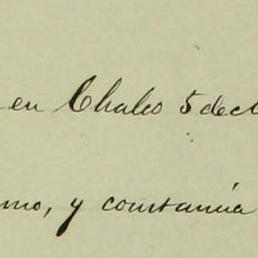 en Chalco 5 de
mo, y constancia